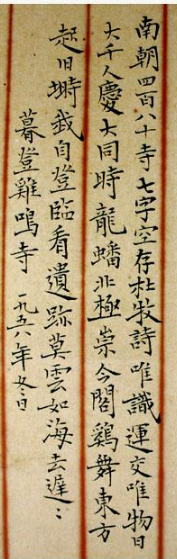 南朝四百八十寺七字空存杜牧詩唯識運交唯物日
大千人慶大同時龍蟠北極崇今閣鷄舞東方
起旧塒我自登臨看遺跡莫雲如海去遲〻
暮登雞鳴寺 一九五六年冬日